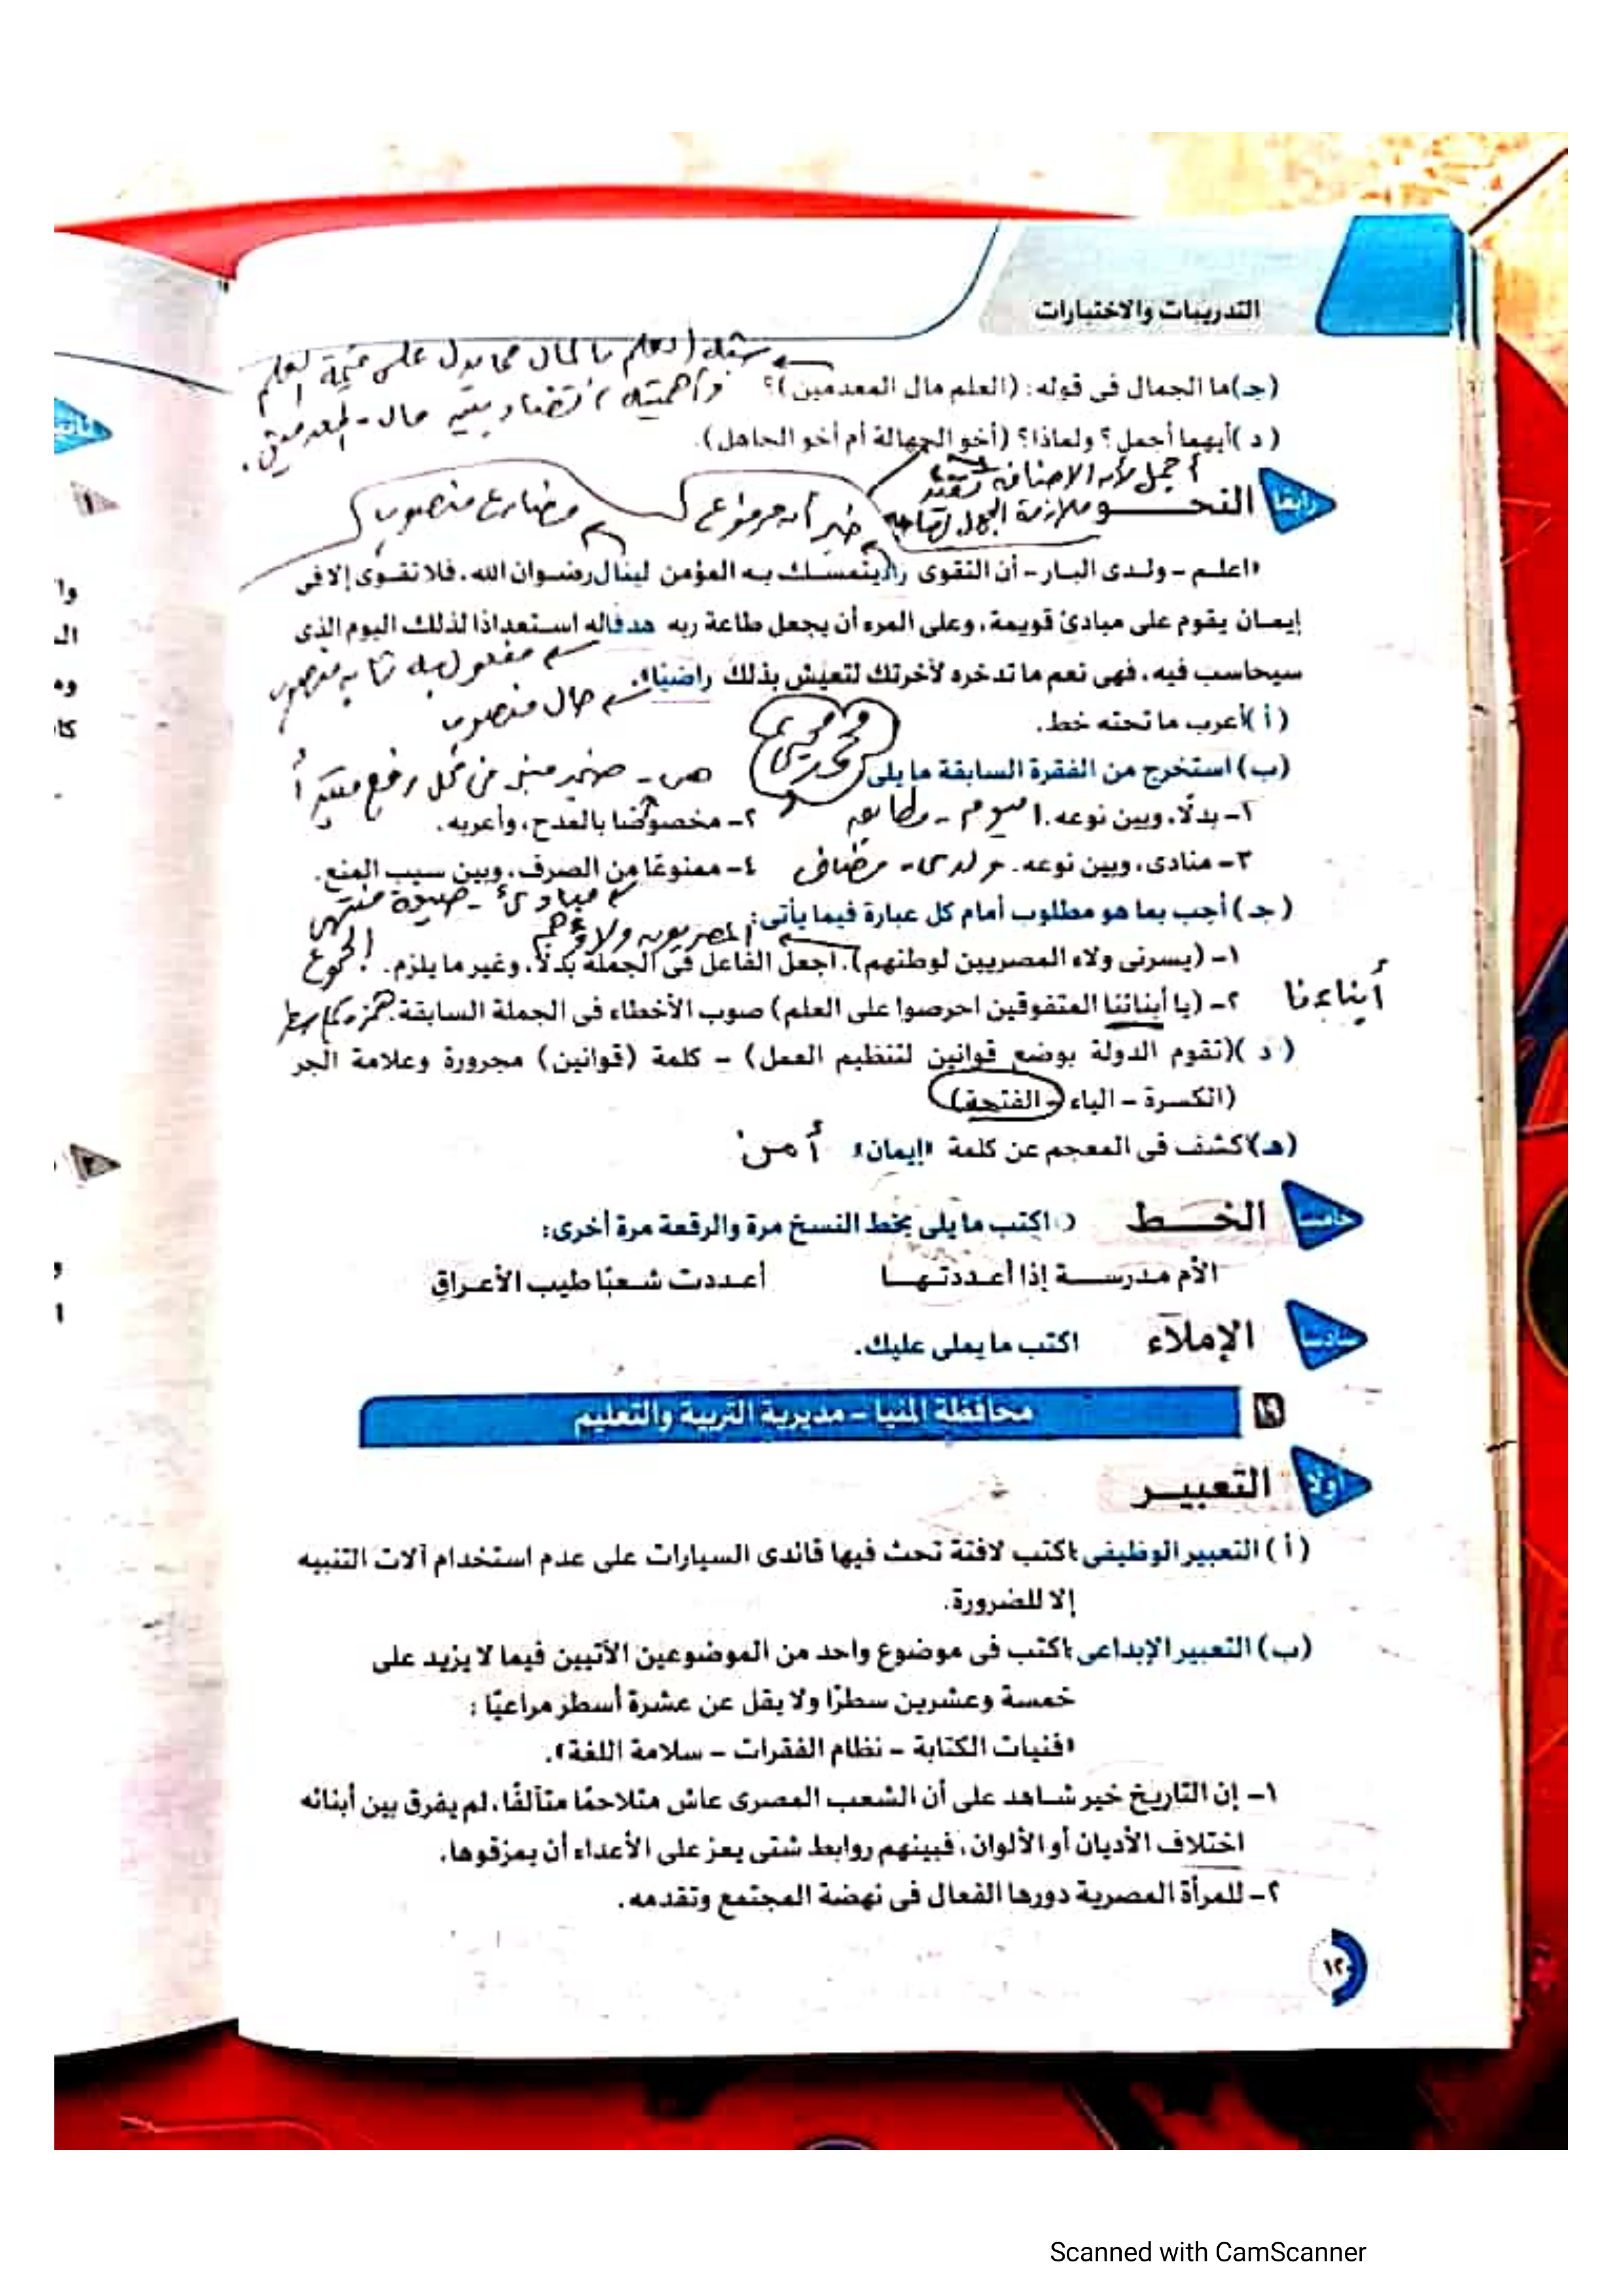 التدريبات والاختبارات
(جـ) ما الجمال فى قوله: (العلم مال المعدمين)؟
شبه العلم بالمال مما يدل على قيمة العلم
وأهميته / تضاد بين مال - المعدمين.
(د) أيهما أجمل؟ ولماذا؟ (أخو الجهالة أم أخو الجاهل).
أجمل لأن الإضافة تفيد
ملازمة الجهل لصاحبه
رابعًا النحـــو
خبر أن مرفوع
مضارع منصوب
«اعلم - ولدى البار - أن التقوى زاد يتمسك به المؤمن لينال رضوان الله، فلا تقوى إلا فى
إيمان يقوم على مبادئ قويمة، وعلى المرء أن يجعل طاعة ربه هدفا له استعدادًا لذلك اليوم الذى
مفعول به ثان منصوب
سيحاسب فيه، فهى نعم ما تدخره لآخرتك لتعيش بذلك راضيًا».
حال منصوب
(أ) أعرب ما تحته خط.
(ب) استخرج من الفقرة السابقة ما يلى
هى - ضمير مبنى فى محل رفع مبتدأ
١- بدلًا، وبين نوعه. اليوم - مطابق
٢- مخصوصًا بالمدح، وأعربه.
٣- منادى، وبين نوعه. ولدى - مضاف
٤- ممنوعًا من الصرف، وبين سبب المنع.
مبادئ - صيغة منتهى
الجموع
(جـ) أجب بما هو مطلوب أمام كل عبارة فيما يأتى:
المصريون ولاؤهم
١- (يسرنى ولاء المصريين لوطنهم). اجعل الفاعل فى الجملة بدلًا، وغير ما يلزم.
٢- (يا أبنائنا المتفوقين احرصوا على العلم) صوب الأخطاء فى الجملة السابقة.
أبناءنا
(د) (تقوم الدولة بوضع قوانين لتنظيم العمل) - كلمة (قوانين) مجرورة وعلامة الجر
(الكسرة - الياء - الفتحة)
(هـ) اكشف فى المعجم عن كلمة «إيمان» أمن
خامسًا الخـــط
اكتب ما يلى بخط النسخ مرة والرقعة مرة أخرى:
الأم مدرســـة إذا أعـددتـهـــا أعـددت شـعبًا طيب الأعـراقِ
سادسًا الإملاء
اكتب ما يملى عليك.
١٩ محافظة المنيا - مديرية التربية والتعليم
أولًا التعبيـــر
(أ) التعبير الوظيفى: اكتب لافتة تحث فيها قائدى السيارات على عدم استخدام آلات التنبيه
إلا للضرورة.
(ب) التعبير الإبداعى: اكتب فى موضوع واحد من الموضوعين الآتيين فيما لا يزيد على
خمسة وعشرين سطرًا ولا يقل عن عشرة أسطر مراعيًا:
«فنيات الكتابة - نظام الفقرات - سلامة اللغة».
١- إن التاريخ خير شاهد على أن الشعب المصرى عاش متلاحمًا متآلفًا، لم يفرق بين أبنائه
اختلاف الأديان أو الألوان، فبينهم روابط شتى يعز على الأعداء أن يمزقوها.
٢- للمرأة المصرية دورها الفعال فى نهضة المجتمع وتقدمه.
١٢٠
Scanned with CamScanner